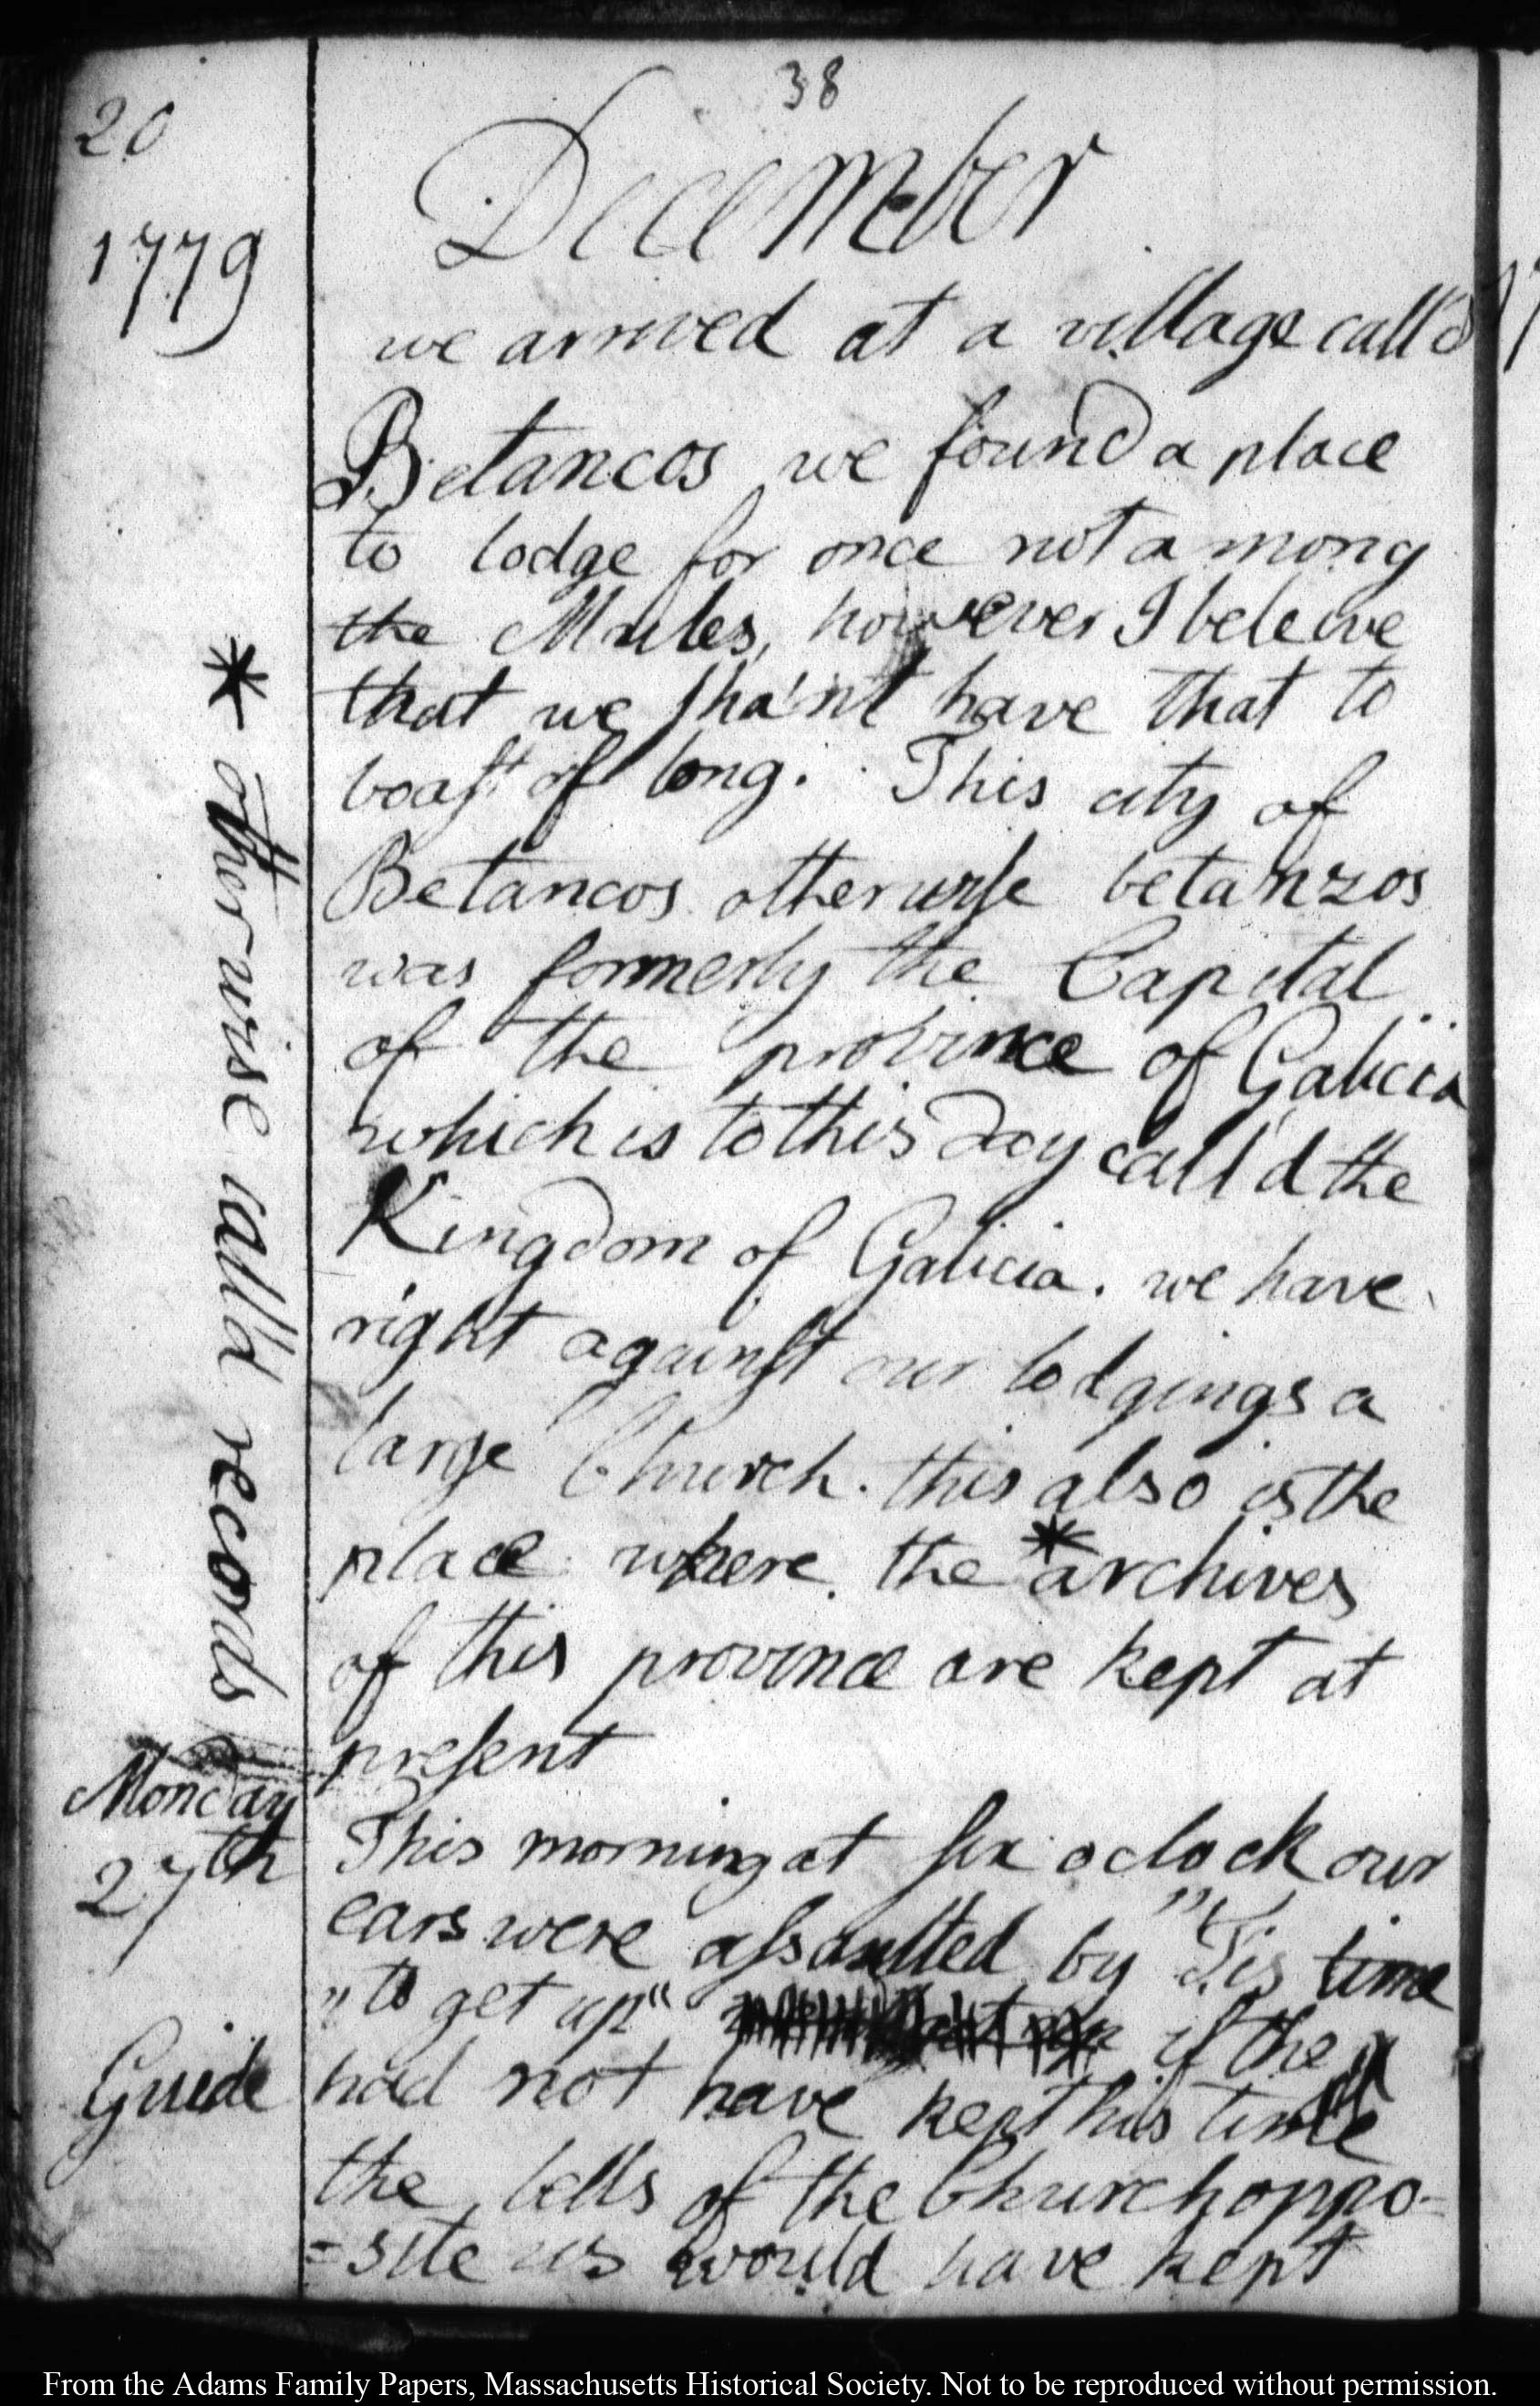 38
20
1779
December
we arrived at a village call'd
Betancos we found a place
to lodge for once not a mong
the Mules, however I beleive
that we sha'nt have that to
boast of long. This city of
Betancos otherwise betanzos
was formerly the Capital
of the province of Galicia
which is to this day call'd the
Kingdom of Galicia. we have
right against our lodgings a
large Church. this also is the
place where the *archives
of this province are kept at
present
* otherwise call'd records
Monday
27th
This morning at six o clock our
ears were assaulted by "Tis time
"to get up" if the
Guide had not have kept his time
the bells of the Church oppo-
=site us would have kept
From the Adams Family Papers, Massachusetts Historical Society. Not to be reproduced without permission.